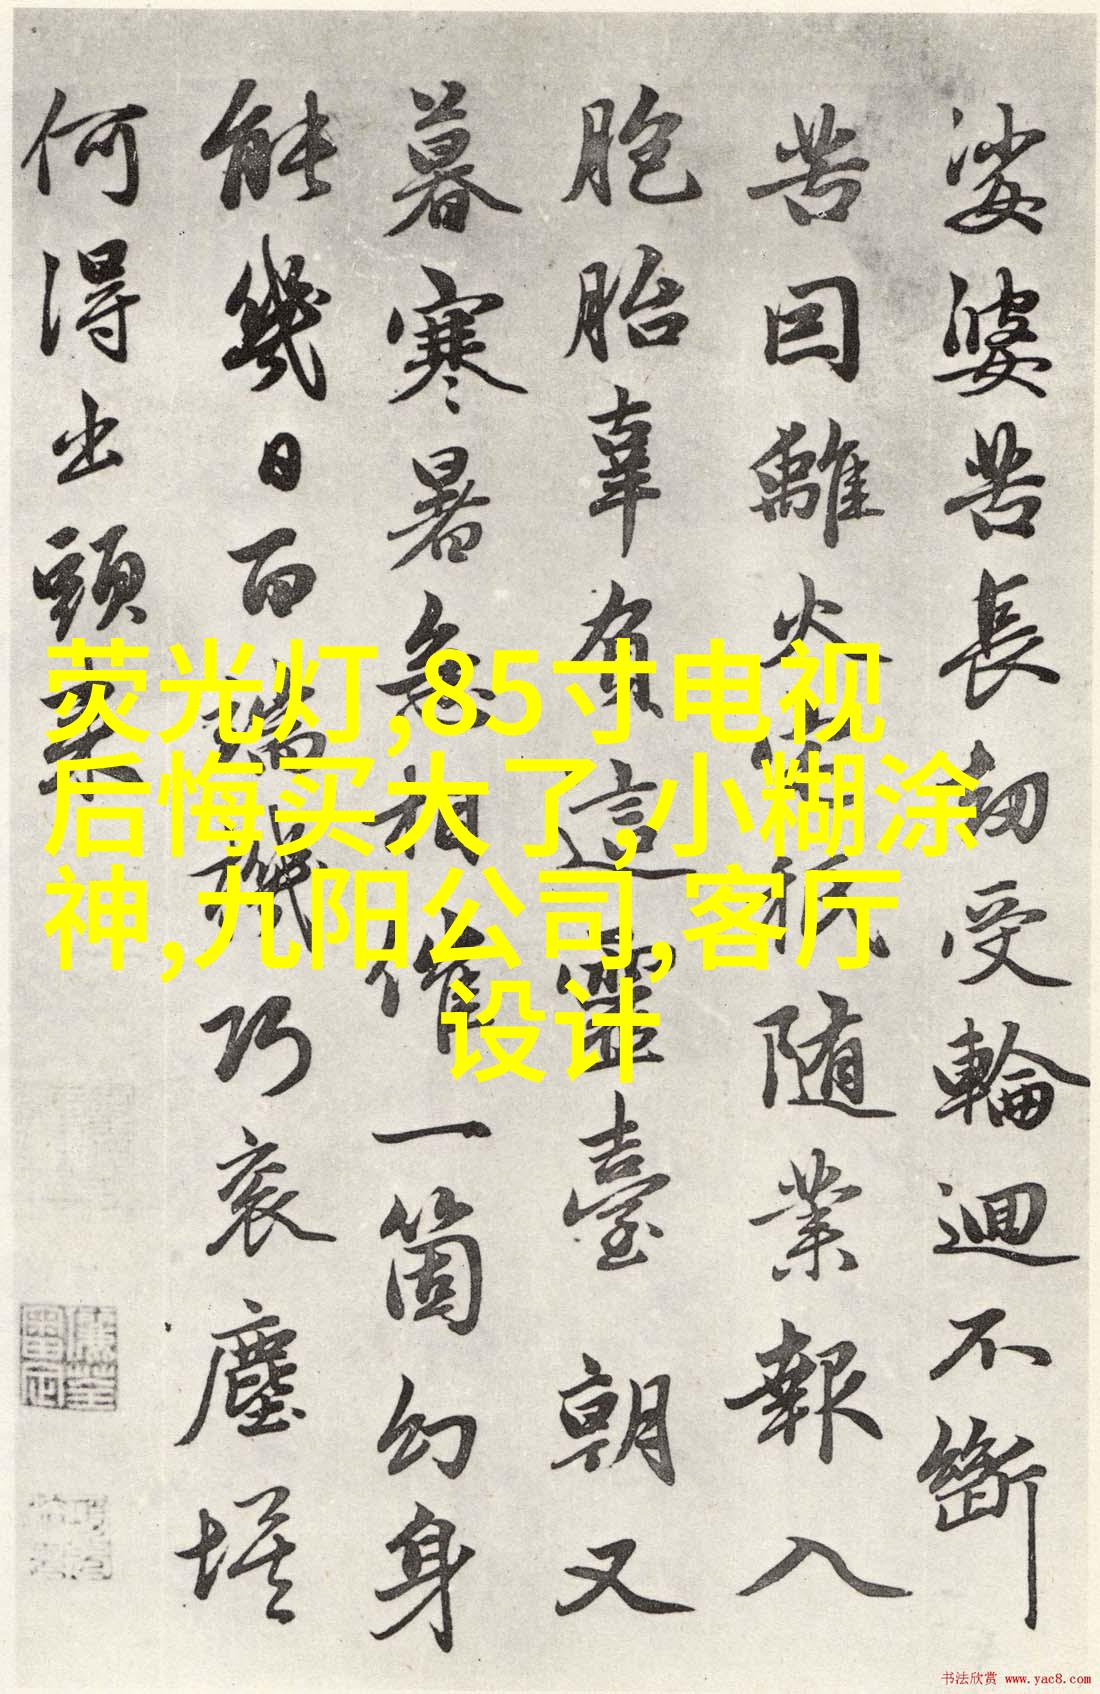 娑婆苦長劫受輪迴不斷
苦因離火宅秖随業報入
胞胎辜負這靈臺朝又
暮寒暑急相催一箇幻身
能幾日百端機巧衮塵埃
何得出頭来
荧光灯,85寸电视
后悔买大了,小糊涂
神,九阳公司,客厅
设计
书法欣赏 www.yac8.com